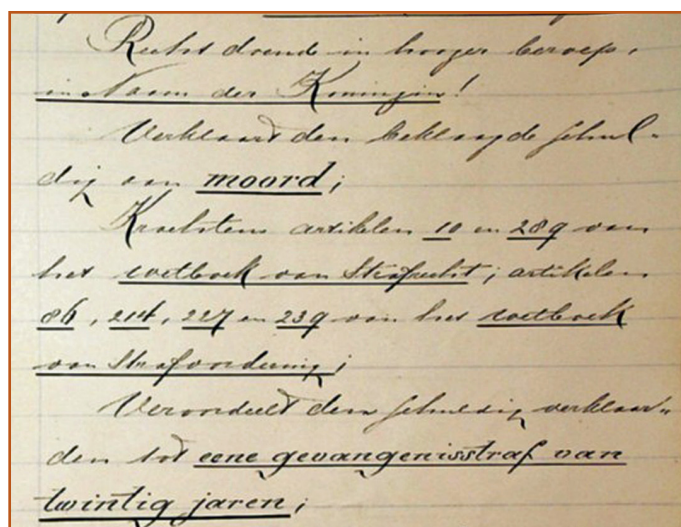 Recht doend in hooger beroep,
in Naam der Koningin!
Verklaart den beklaagde schul-
dig aan moord;
Krachtens artikelen 10 en 289 van
het wetboek van Strafrecht; artikelen
86, 214, 227 en 239 van het wetboek
van Strafvordering;
Veroordeelt den schuldig verklaar-
den tot eene gevangenisstraf van
twintig jaren;